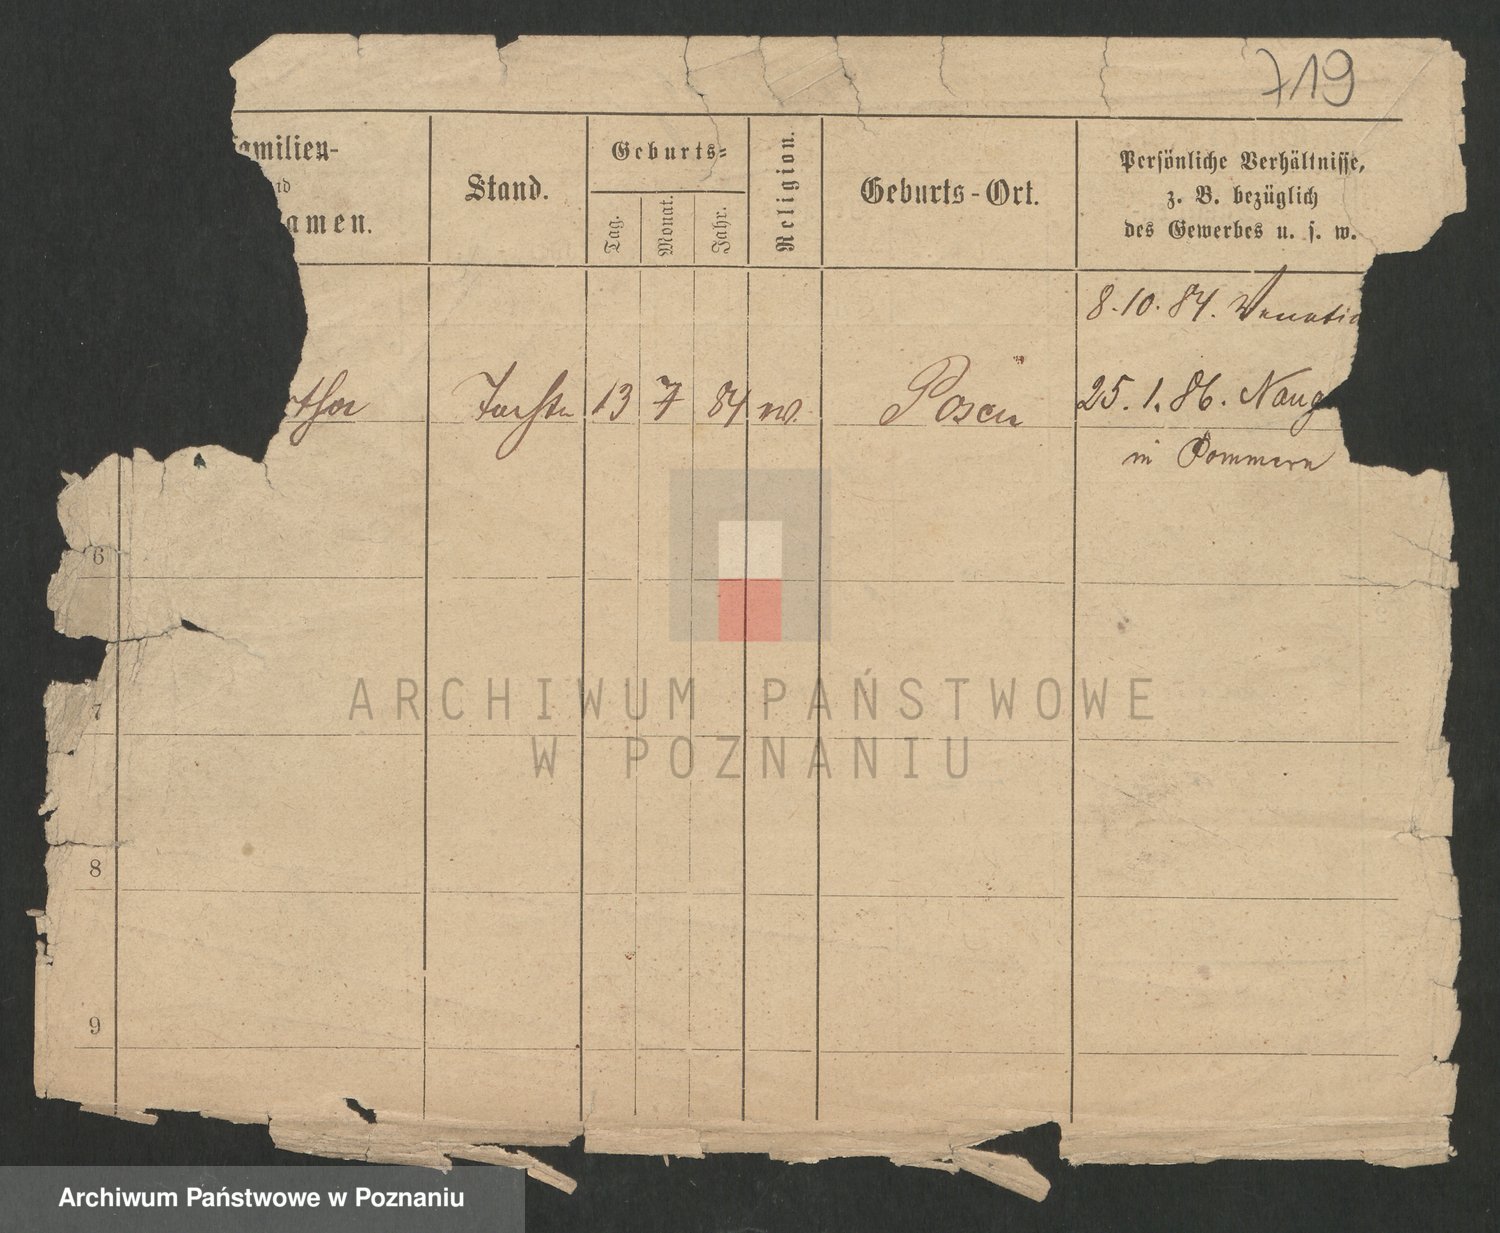 719
amilien-
nd
amen.
Stand.
Geburts-
Tag.
Monat.
Jahr.
Religion.
Geburts-Ort.
Persönliche Verhältnisse,
z. B. bezüglich
des Gewerbes u. s. w.
8.10.84. Venetia
tha 13 7 84 Posen 25.1.86. Naug
in Pommern
6
ARCHIWUM PAŃSTWOWE
7
W POZNANIU
8
9
Archiwum Państwowe w Poznaniu